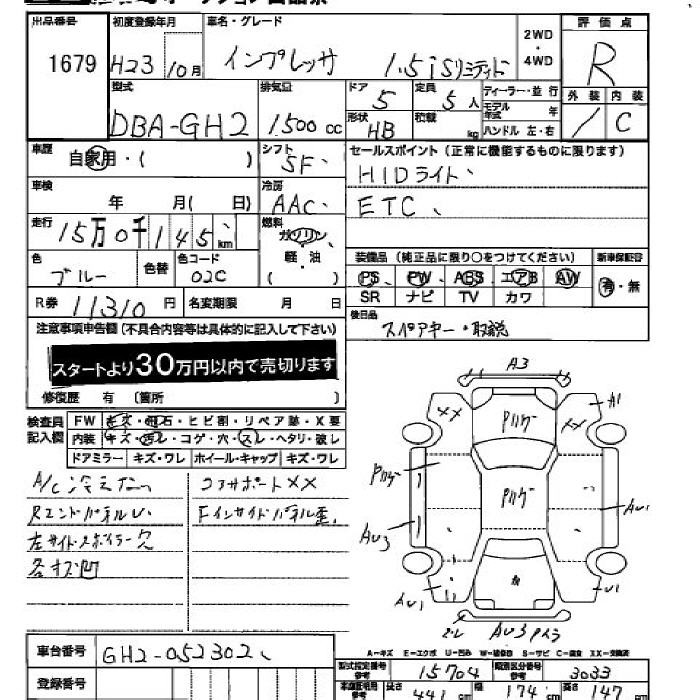 出品番号 初度登録年月 車名・グレード 2WD・4WD 評価点
1679 H23 10月 インプレッサ 1.5iSリミテッド R
型式 排気量 ドア 定員 ディーラー・並行 外装 内装
DBA-GH2 1500cc 5 5人 モデル年式 年 / C
形状 HB 積載 kg ハンドル 左・右
車歴 自家用・( ) シフト 5F セールスポイント(正常に機能するものに限ります)
HIDライト、
車検 年 月( 日) 冷房 AAC、 ETC、
走行 15万0千145km 燃料 ガソリン・軽・油( )
装備品(純正品に限り○をつけてください) 新車保証書
色 ブルー 色替 色コード 02C PS PW ABS エアB AW 有・無
SR ナビ TV カワ
R券 11310円 名変期限 月 日 後日品
スペアキー・取説
注意事項申告欄(不具合内容等は具体的に記入して下さい)
スタートより30万円以内で売切ります
修復歴 有 〔箇所 〕
検査員記入欄 FW キズ・飛石・ヒビ割・リペア跡・X要
内装 キズ・汚レ・コゲ・穴・スレ・ヘタリ・破レ
ドアミラー キズ・ワレ ホイール・キャップ キズ・ワレ
A/C冷えなっ コアサポートXX
RエンドパネルU Fインサイドパネル歪、
左サイドスポイラー欠
各キズ凹
A3
A1
XX
XX
Pハゲ
Pハゲ
Pハゲ
AU3
AU1
AU1
U1
AU3
車台番号 GH2-052302
A-キズ E-エクボ U-凹み W-補修跡 S-サビ C-腐食 XX-交換済
型式指定番号 参考 15704 類別区分番号 参考 3033
登録番号 車庫証明用 参考 長さ 441cm 幅 174cm 高さ 147cm